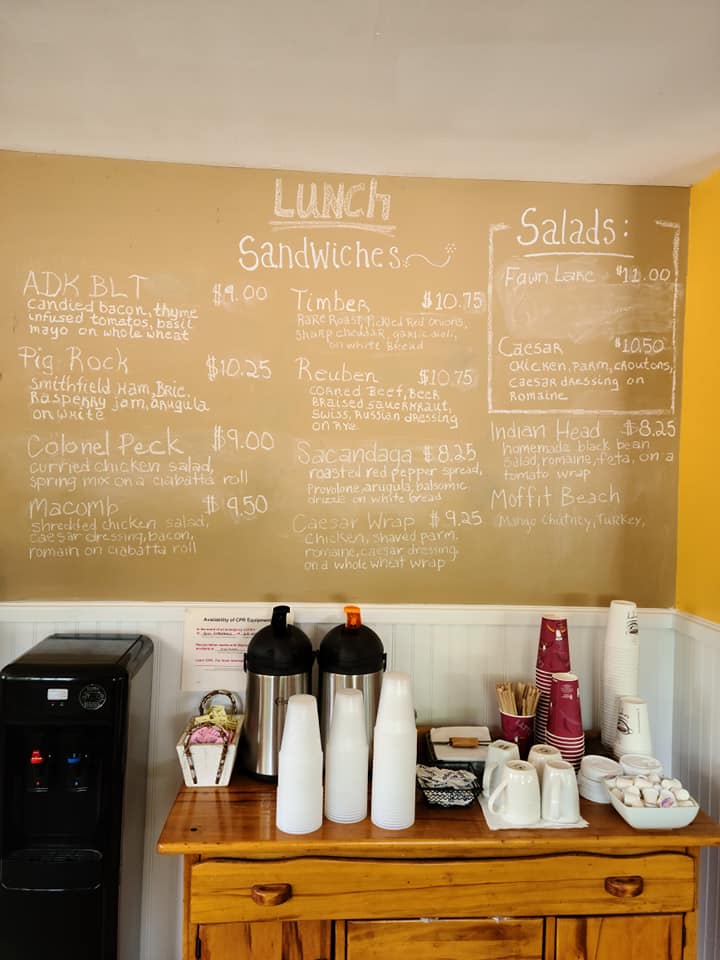 LUNCH
Sandwiches
ADK BLT $9.00
candied bacon, thyme
infused tomatos, basil
mayo on whole wheat
Pig Rock $10.25
Smithfield Ham, Brie,
Rasperry jam, arugula
on white
Colonel Peck $9.00
curried chicken salad,
spring mix on a ciabatta roll
Macomb $9.50
shredded chicken salad,
caesar dressing, bacon,
romain on ciabatta roll
Timber $10.75
Rare Roast, Pickled Red onions,
sharp cheddar, garlic aioli,
on white Bread
Reuben $10.75
corned Beef, Beer
Braised sauerkraut,
Swiss, Russian dressing
on Rye.
Sacandaga $8.25
roasted red pepper spread,
Provolone, arugula, balsomic
drizzle on white bread
Caesar Wrap $9.25
chicken, shaved parm.
romaine, caesar dressing,
on a whole wheat wrap
Salads:
Fawn Lake $11.00
Caesar $10.50
chicken, parm, croutons,
caesar dressing on
Romaine
Indian Head $8.25
homemade black bean
salad, romaine, feta, on a
tomato wrap
Moffit Beach
Mango chutney, Turkey,
Availability of CPR Equipment